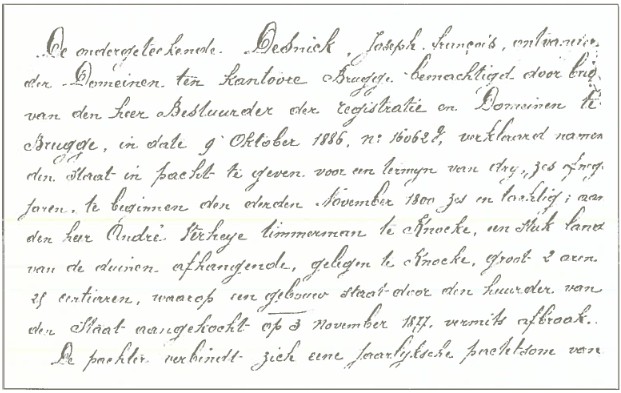 De ondergeteekende. Desnick, Joseph. françois, ontvanger
der Domeinen ten kantoore Brugge bemachtigd door brief
van den heer Bestuurder der registratie en Domeinen te
Brugge, in date 9 Oktober 1886, n: 16062 verklaard namens
den Staat in pacht te geven voor een termyn van dry, zes of neg
jaren. te beginnen den derden November 1800 zes en tachtig; aan
den heer André. Verheye timmerman te Knocke, een stuk land
van de duinen afhangende, gelegen te Knocke, groot 2 aren
25 centiaren, waarop een gebouw staat door den huurder van
den Staat aangekocht op 3 November 1877. vermits afbraak.
De pachter verbindt zich eene jaarlyksche pachtsom van